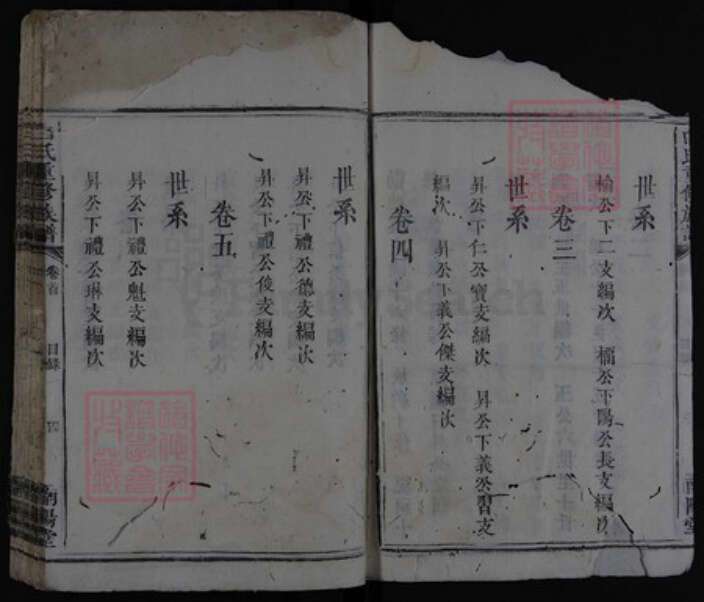 世系
榆公下二支編次 楣公下陽公長支編次
卷三
世系
昇公下仁公寶支編次 昇公下義公習支
編次 昇公下義公傑支編次
卷四
世系
昇公下禮公德支編次
昇公下禮公俊支編次
卷五
世系
昇公下禮公魁支編次
昇公下禮公琳支編次
氏重修族譜
卷首
目錄
南陽堂